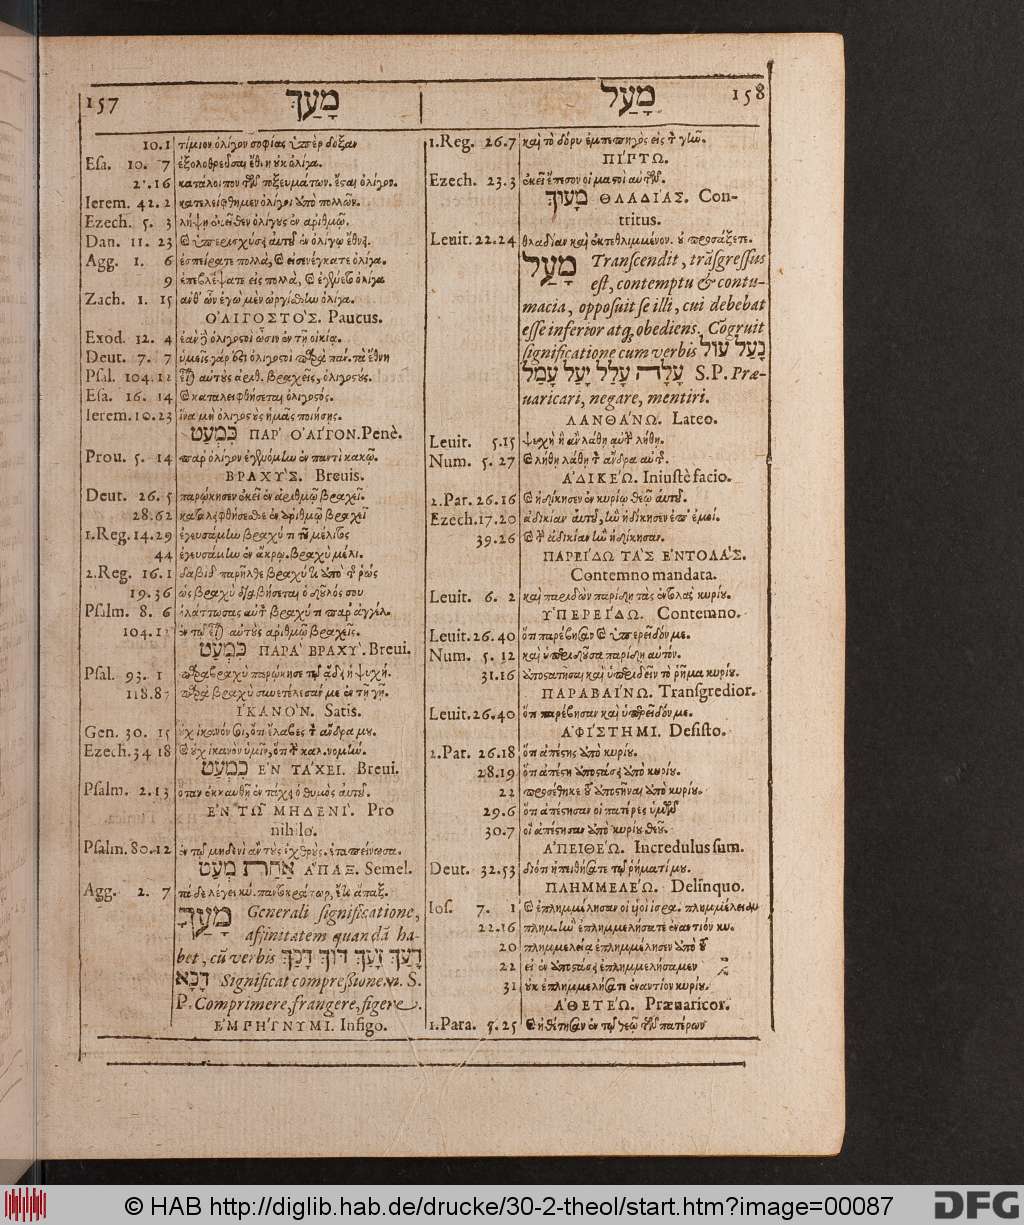 157 מָעַךְ
10.1 τίμιον ὀλίγον σοφίας ὑπὲρ δόξαν
Esa. 10. 7 ἐξολοθρεῦσαι ἔθνη οὐκ ὀλίγα.
21.16 κατάλοιπον τῶν τοξευμάτων. ἔσται ὀλίγον.
Ierem. 42.2 κατελείφθημεν ὀλίγοι ὑπὸ πολλῶν.
Ezech. 5. 3 λήψῃ ἐκεῖθεν ὀλίγους ἐν ἀριθμῷ.
Dan. 11. 23 ἐν ὀλίγῳ ἔθνει.
Agg. 1. 6 ἐσπείρατε πολλὰ, καὶ εἰσενέγκατε ὀλίγα.
9 ἐπεβλέψατε εἰς πολλὰ, καὶ ἐγένετο ὀλίγα
Zach. 1. 15 ἀνθ' ὧν ἐγὼ μὲν ὠργίσθην ὀλίγα.
ΟΛΙΓΟΣΤΟΣ. Paucus.
Exod. 12. 4 ἐὰν δὲ ὀλιγοστοὶ ὦσιν ἐν τῇ οἰκίᾳ.
Deut. 7. 7 ὑμεῖς γάρ ἐστε ὀλιγοστοὶ παρὰ πάν. τὰ ἔθνη
Psal. 104.12 αὐτοὺς ἀριθ. βραχεῖς, ὀλιγοστούς.
Esa. 16. 14 καὶ καταλειφθήσεται ὀλιγοστός.
Ierem. 10.23 ἵνα μὴ ὀλιγοστοὺς ἡμᾶς ποιήσῃς.
כִּמְעַט ΠΑΡ' ΟΛΙΓΟΝ. Penè.
Prou. 5. 14 παρ' ὀλίγον ἐγενόμην ἐν παντὶ κακῷ.
ΒΡΑΧΥΣ. Breuis.
Deut. 26. 5 παρῴκησεν ἐκεῖ ἐν ἀριθμῷ βραχεῖ.
28.62 καταλειφθήσεσθε ἐν ἀριθμῷ βραχεῖ
1.Reg. 14.29 ἐγευσάμην βραχύ τι τοῦ μέλιτος
44 ἐγευσάμην ἐν ἄκρῳ. βραχὺ μέλι.
2.Reg. 16.1 δαβὶδ παρῆλθε βραχύ τι ἀπὸ τῆς ῥώς
19.36 ὡς βραχὺ διαβήσεται ὁ δοῦλός σου
Psalm. 8. 6 ἠλάττωσας αὐτὸν βραχύ τι παρ' ἀγγέλ.
104.12 ἐν τῷ εἶναι αὐτοὺς ἀριθμῷ βραχεῖς.
כִּמְעַט ΠΑΡΑ ΒΡΑΧΥ. Breui.
Psal. 93. 1 παραβραχὺ παρῴκησε τῷ ᾅδῃ ἡ ψυχή.
118.87 παραβραχὺ συνετέλεσάν με ἐν τῇ γῇ.
ΙΚΑΝΟΝ. Satis.
Gen. 30. 15 οὐχ ἱκανόν σοι, ὅτι ἔλαβες τὸν ἄνδρα μου.
Ezech. 34 18 καὶ οὐχ ἱκανὸν ὑμῖν, ὅτι τὴν καλ. νομήν.
כִּמְעַט ΕΝ ΤΑΧΕΙ. Breui.
Psalm. 2.13 ὅταν ἐκκαυθῇ ἐν τάχει ὁ θυμὸς αὐτοῦ.
ΕΝ ΤΩ ΜΗΔΕΝΙ. Pro
nihilo.
Psalm. 80.12 ἐν τῷ μηδενὶ ἂν τοὺς ἐχθροὺς. ἐταπείνωσα.
אַחַת מְעַט ΑΠΑΞ. Semel.
Agg. 2. 7 τάδε λέγει κύ. παντοκράτωρ, ἔτι ἅπαξ.
מָעַךְ Generali significatione,
affinitatem quandā ha-
bet, cū verbis דָּעַךְ זָעַךְ דּוּךְ דָּכַךְ
דָּכָא Significat compreßionem. S.
P. Comprimere, frangere, figere.
ΕΜΡΗΓΝΥΜΙ. Infigo.
מָעַל 158
1.Reg. 26.7 καὶ τὸ δόρυ ἐμπεπηγὸς εἰς τὴν γῆν.
ΠΙΡΤΩ.
Ezech. 23.3 ἐκεῖ ἔπεσον οἱ μαστοὶ αὐτῶν.
מָעוּךְ ΘΛΑΔΙΑΣ. Con-
tritus.
Leuit. 22.24 θλαδίαν καὶ ἐκτεθλιμμένον. οὐ προσάξετε.
מָעַל Transcendit, trāsgressus
est, contemptu & contu-
macia, opposuit se illi, cui debebat
esse inferior atq; obediens. Cōgruit
significatione cum verbis בָּעַל עוּל
עָלָה עָלַל יָעַל עָמַל S.P. Præ-
uaricari, negare, mentiri.
ΛΑΝΘΑΝΩ. Lateo.
Leuit. 5.15 ψυχὴ ἣ ἂν λάθῃ αὐτὸν λήθῃ.
Num. 5. 27 καὶ λήθῃ λάθῃ τὸν ἄνδρα αὐτῆς.
ΑΔΙΚΕΩ. Iniustè facio.
2.Par. 26.16 καὶ ἠδίκησεν ἐν κυρίῳ θεῷ αὐτοῦ.
Ezech. 17.20 ἀδικίαν αὐτοῦ, ἣν ἠδίκησεν ἐν ἐμοί.
39.26 καὶ τὴν ἀδικίαν ἣν ἠδίκησαν.
ΠΑΡΕΙΔΩ ΤΑΣ ΕΝΤΟΛΑΣ.
Contemno mandata.
Leuit. 6. 2 καὶ παριδὼν παρίδῃ τὰς ἐντολὰς κυρίου.
ΥΠΕΡΕΙΔΩ. Contemno.
Leuit. 26.40 ὅτι παρέβησαν καὶ ὑπερεῖδόν με.
Num. 5. 12 καὶ ὑπεριδοῦσα παρίδῃ αὐτόν.
31.16 ἀποστῆσαι καὶ ὑπεριδεῖν τὸ ῥῆμα κυρίου.
ΠΑΡΑΒΑΙΝΩ. Transgredior.
Leuit. 26.40 ὅτι παρέβησαν καὶ ὑπερεῖδόν με.
ΑΦΙΣΤΗΜΙ. Desisto.
2.Par. 26.18 ὅτι ἀπέστης ἀπὸ κυρίου.
28.19 ὅτι ἀπέστη ἀποστάσει ἀπὸ κυρίου.
22 προσέθηκε τοῦ ἀποστῆναι ἀπὸ κυρίου.
29.6 ὅτι ἀπέστησαν οἱ πατέρες ὑμῶν
30.7 οἳ ἀπέστησαν ἀπὸ κυρίου θεοῦ.
ΑΠΕΙΘΕΩ. Incredulus sum.
Deut. 32.53 διότι ἠπειθήσατε τῷ ῥήματί μου.
ΠΛΗΜΜΕΛΕΩ. Delinquo.
Ios. 7. 1 καὶ ἐπλημμέλησαν οἱ υἱοὶ ἰσρα. πλημμέλειαν
22.16 πλημ. ἣν ἐπλημμελήσατε ἐναντίον κυ.
20 πλημμελείᾳ ἐπλημμέλησεν ἀπὸ τοῦ
22 εἰ ἐν ἀποστάσει ἐπλημμελήσαμεν
31 οὐκ ἐπλημμελήσατε ἐναντίον κυρίου.
ΑΘΕΤΕΩ. Præuaricor.
1.Para. 5.25 καὶ ἠθέτησαν ἐν τῷ θεῷ τῶν πατέρων
© HAB http://diglib.hab.de/drucke/30-2-theol/start.htm?image=00087
DFG